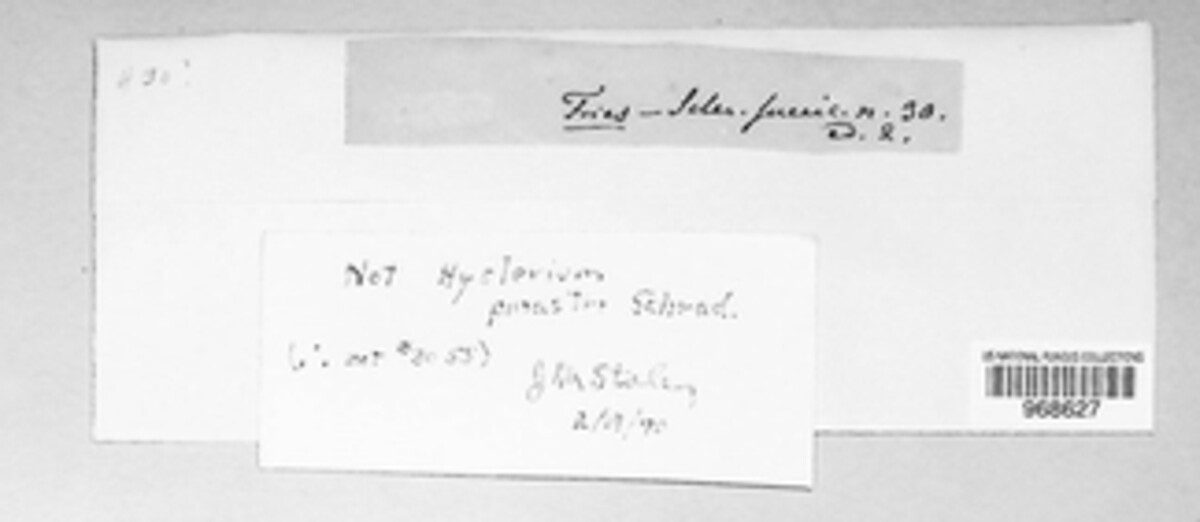 Fries – Scler. suecic. n. 30.
Ed. 2.
Not Hysterium
pinastri Schrad.
(∴ not #2055)
J M Staley
US NATIONAL FUNGUS COLLECTIONS
968627